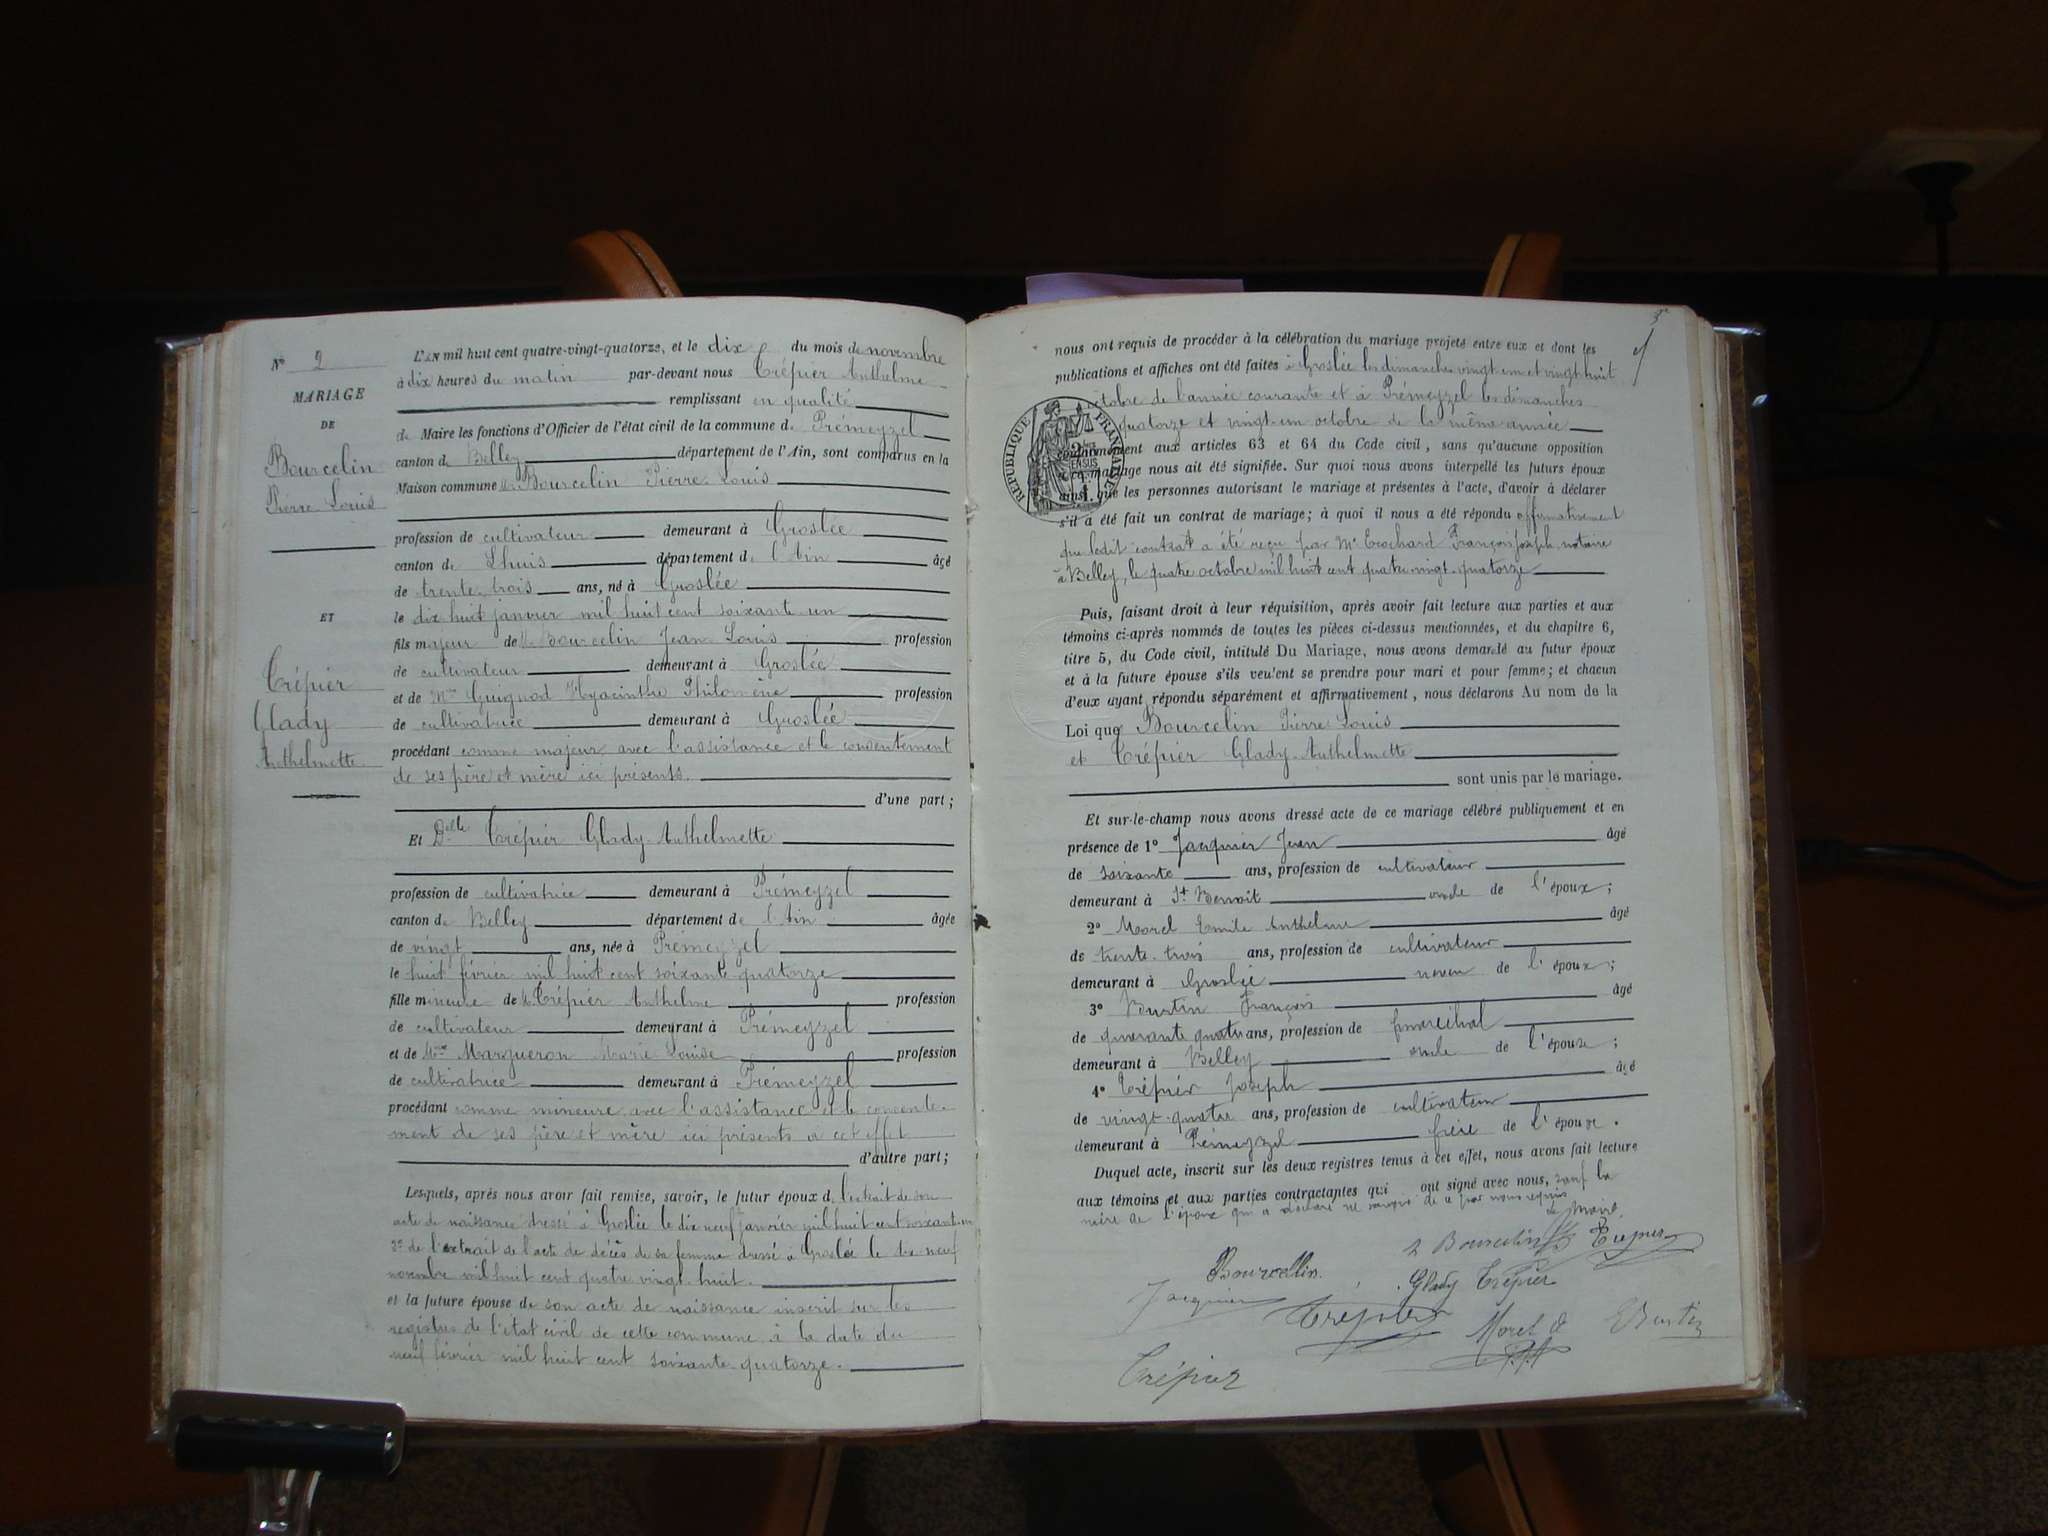 N° 2
MARIAGE
DE
Bourcelin
Pierre Louis
ET
Trépier
Glady
Anthelmette
L'AN mil huit cent quatre-vingt-quatorze, et le dix du mois de novembre
à dix heures du matin par-devant nous Trépier Anthelme
remplissant en qualité
de Maire les fonctions d'Officier de l'état civil de la commune de Prémeyzel
canton de Belley département de l'Ain, sont comparus en la
Maison commune Mr Bourcelin Pierre Louis
profession de cultivateur demeurant à Groslée
canton de Lhuis département de l'Ain âgé
de trente trois ans, né à Groslée
le dix huit janvier mil huit cent soixante un
fils majeur de Mr Bourcelin Jean Louis profession
de cultivateur demeurant à Groslée
et de Mme Guignod Hyacinthe Philomène profession
de cultivatrice demeurant à Groslée
procédant comme majeur avec l'assistance et le consentement
de ses père et mère ici présents.
d'une part;
Et Delle Trépier Glady Anthelmette
profession de cultivatrice demeurant à Prémeyzel
canton de Belley département de l'Ain âgée
de vingt ans, née à Prémeyzel
le huit février mil huit cent soixante quatorze
fille mineure de Mr Trépier Anthelme profession
de cultivateur demeurant à Prémeyzel
et de Mme Margueron Marie Louise profession
de cultivatrice demeurant à Prémeyzel
procédant comme mineure avec l'assistance et le consente-
ment de ses père et mère ici présents à cet effet
d'autre part;
Lesquels, après nous avoir fait remise, savoir, le futur époux de l'extrait de son
acte de naissance dressé à Groslée le dix neuf janvier mil huit cent soixante un
2° de l'extrait de l'acte de décès de sa femme dressé à Groslée le dix neuf
novembre mil huit cent quatre vingt huit.
et la future épouse de son acte de naissance inscrit sur les
registres de l'état civil de cette commune à la date du
neuf février mil huit cent soixante quatorze.
nous ont requis de procéder à la célébration du mariage projeté entre eux et dont les
publications et affiches ont été faites à Groslée les dimanches vingt un et vingt huit
octobre de l'année courante et à Prémeyzel les dimanches
quatorze et vingt un octobre de la même année
conformément aux articles 63 et 64 du Code civil, sans qu'aucune opposition
à ce mariage nous ait été signifiée. Sur quoi nous avons interpellé les futurs époux
ainsi que les personnes autorisant le mariage et présentes à l'acte, d'avoir à déclarer
s'il a été fait un contrat de mariage; à quoi il nous a été répondu affirmativement
que ledit contrat a été reçu par Me François Joseph notaire
à Belley, le quatre octobre mil huit cent quatre vingt quatorze
REPUBLIQUE FRANÇAISE
Puis, faisant droit à leur réquisition, après avoir fait lecture aux parties et aux
témoins ci-après nommés de toutes les pièces ci-dessus mentionnées, et du chapitre 6,
titre 5, du Code civil, intitulé Du Mariage, nous avons demandé au futur époux
et à la future épouse s'ils veulent se prendre pour mari et pour femme; et chacun
d'eux ayant répondu séparément et affirmativement, nous déclarons Au nom de la
Loi que Bourcelin Pierre Louis
et Trépier Glady Anthelmette
sont unis par le mariage.
Et sur-le-champ nous avons dressé acte de ce mariage célébré publiquement et en
présence de 1° Jacquier Jean âgé
de soixante ans, profession de cultivateur
demeurant à St Benoit oncle de l'époux;
2° Morel Emile Anthelme âgé
de trente trois ans, profession de cultivateur
demeurant à Groslée neveu de l'époux;
3° Bustin François âgé
de quarante quatre ans, profession de maréchal
demeurant à Belley oncle de l'épouse;
4° Trépier Joseph âgé
de vingt-quatre ans, profession de cultivateur
demeurant à Prémeyzel frère de l'épouse.
Duquel acte, inscrit sur les deux registres tenus à cet effet, nous avons fait lecture
aux témoins et aux parties contractantes qui ont signé avec nous, sauf la
mère de l'époux qui a déclaré ne savoir de ce par nous requis
Le Maire,
Bourcelin Trépier
Bourcellin Glady Trépier
Jacquier Trépier Morel E Bustin
Trépier